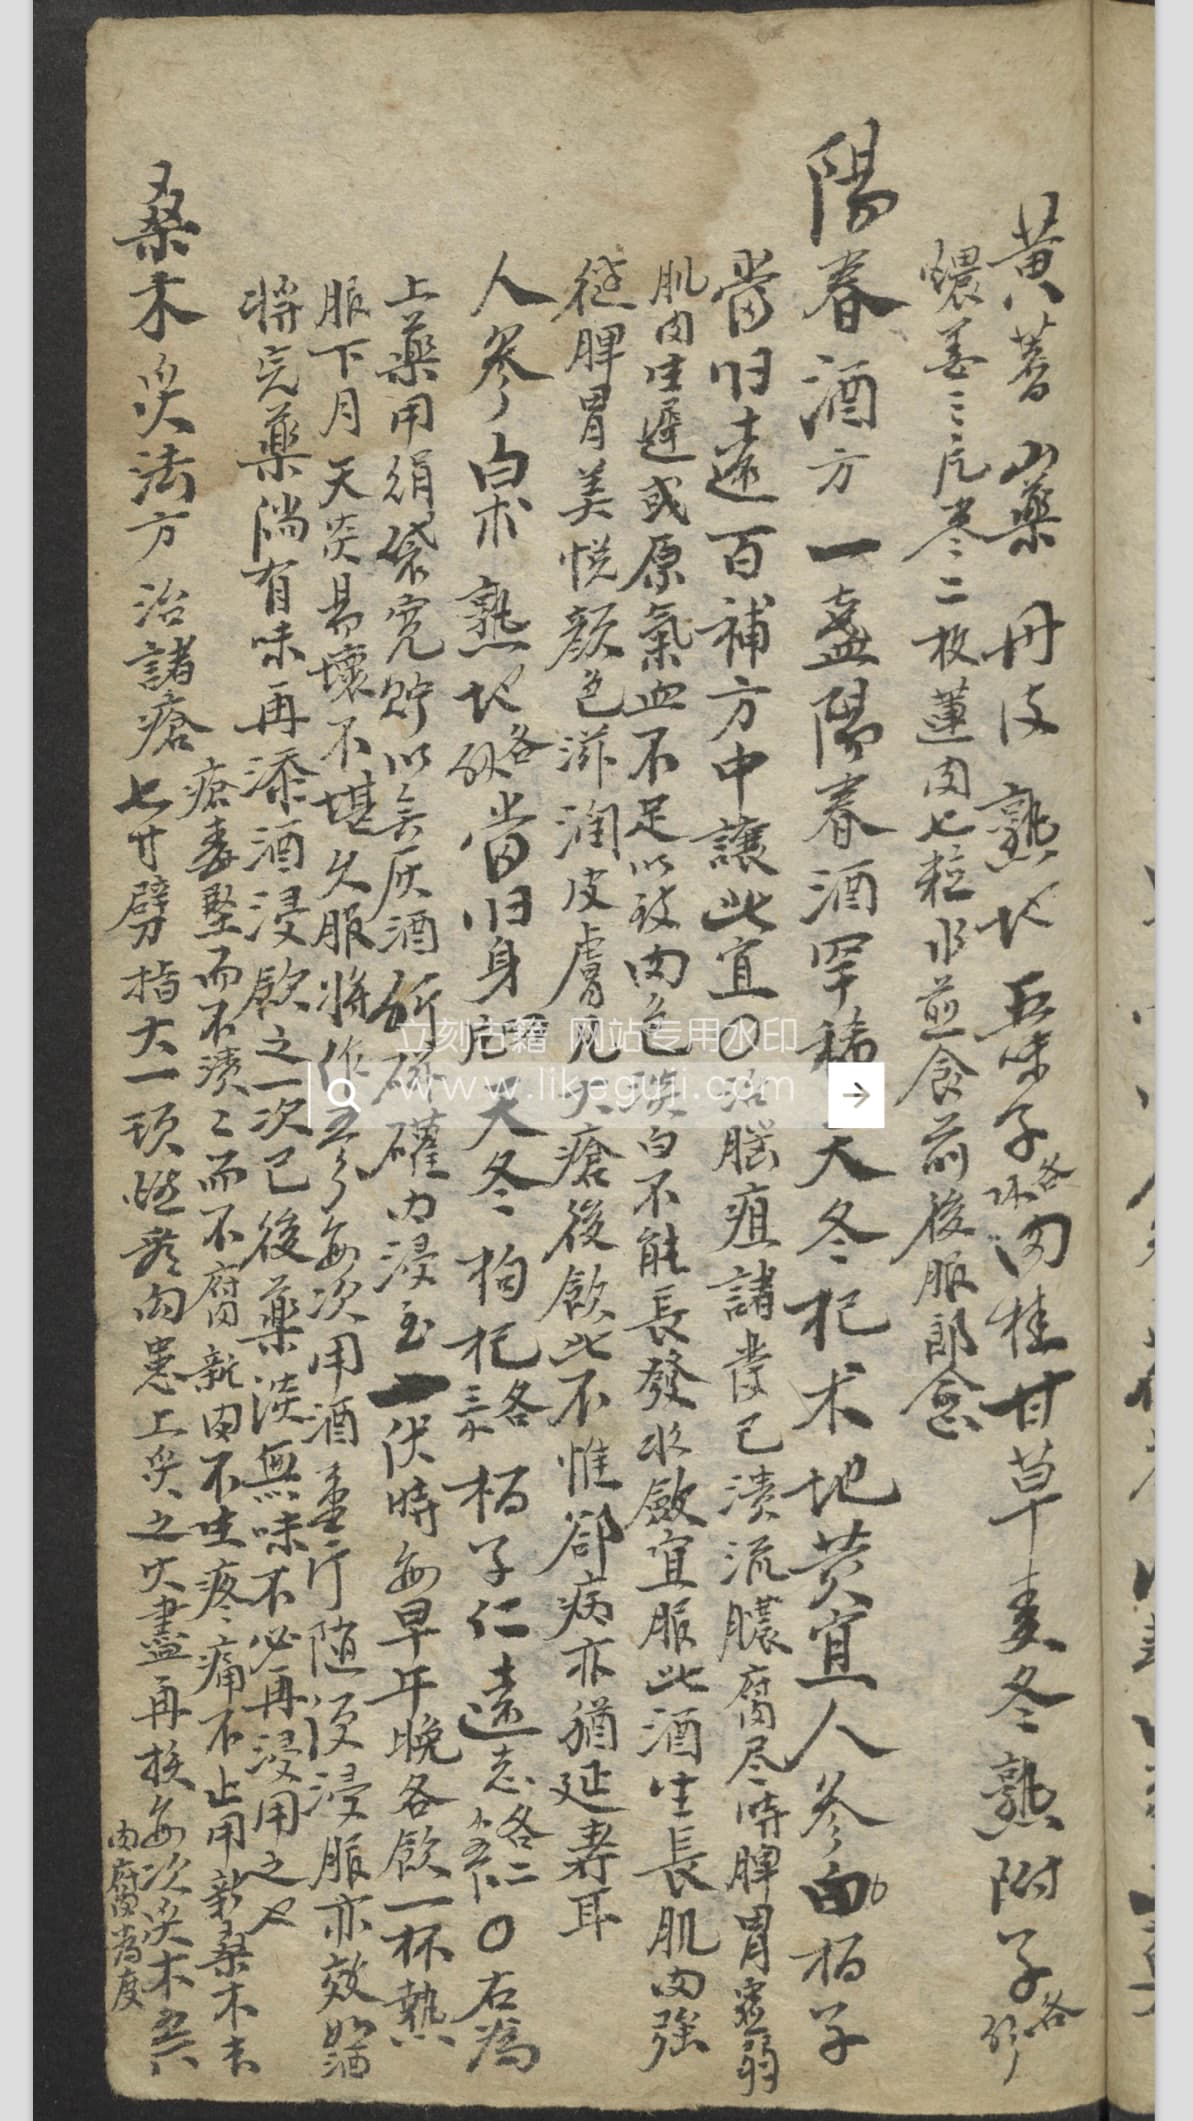 黄蓍 山藥 丹皮 熟地 五味子各 肉桂 甘草 麦冬 熟附子各
煨姜三片枣二枚蓮肉七粒水煎食前後服
陽春酒方 一盏陽春酒罕稀天冬杞术地黄宜人参白柏子
當归遠百補方中讓此宜〇治腦疽諸發已潰流膿腐尽時脾胃虚弱
肌肉生遲或原氣血不足以致肉色 白不能長發收斂宜服此酒生長肌肉強
徤脾胃美悦颜色滋润皮膚凡大瘡後飲此不惟郤病亦猶延寿耳
人参白术 熟地各 當归身 天冬 枸杞各三 栢子仁 遠志各二 〇右為
上藥用绢袋宽贮以無灰酒 礶内浸至一伏時每早午晚各飲一杯熱
服下月天炎易壞不堪久服将作五 每次用酒壹斤随便浸服亦效如酒
将完藥尚有味再添酒浸飲之一次已後藥淡無味不必再浸用之
桑木炙法方 治諸瘡 瘡毒堅而不潰潰而不腐新肉不生疼痛不止用新桑木
七寸劈指大一 向患上炙之火盡再换每次炙木
肉腐為度
立刻古籍 网站专用水印
www.likeguji.com